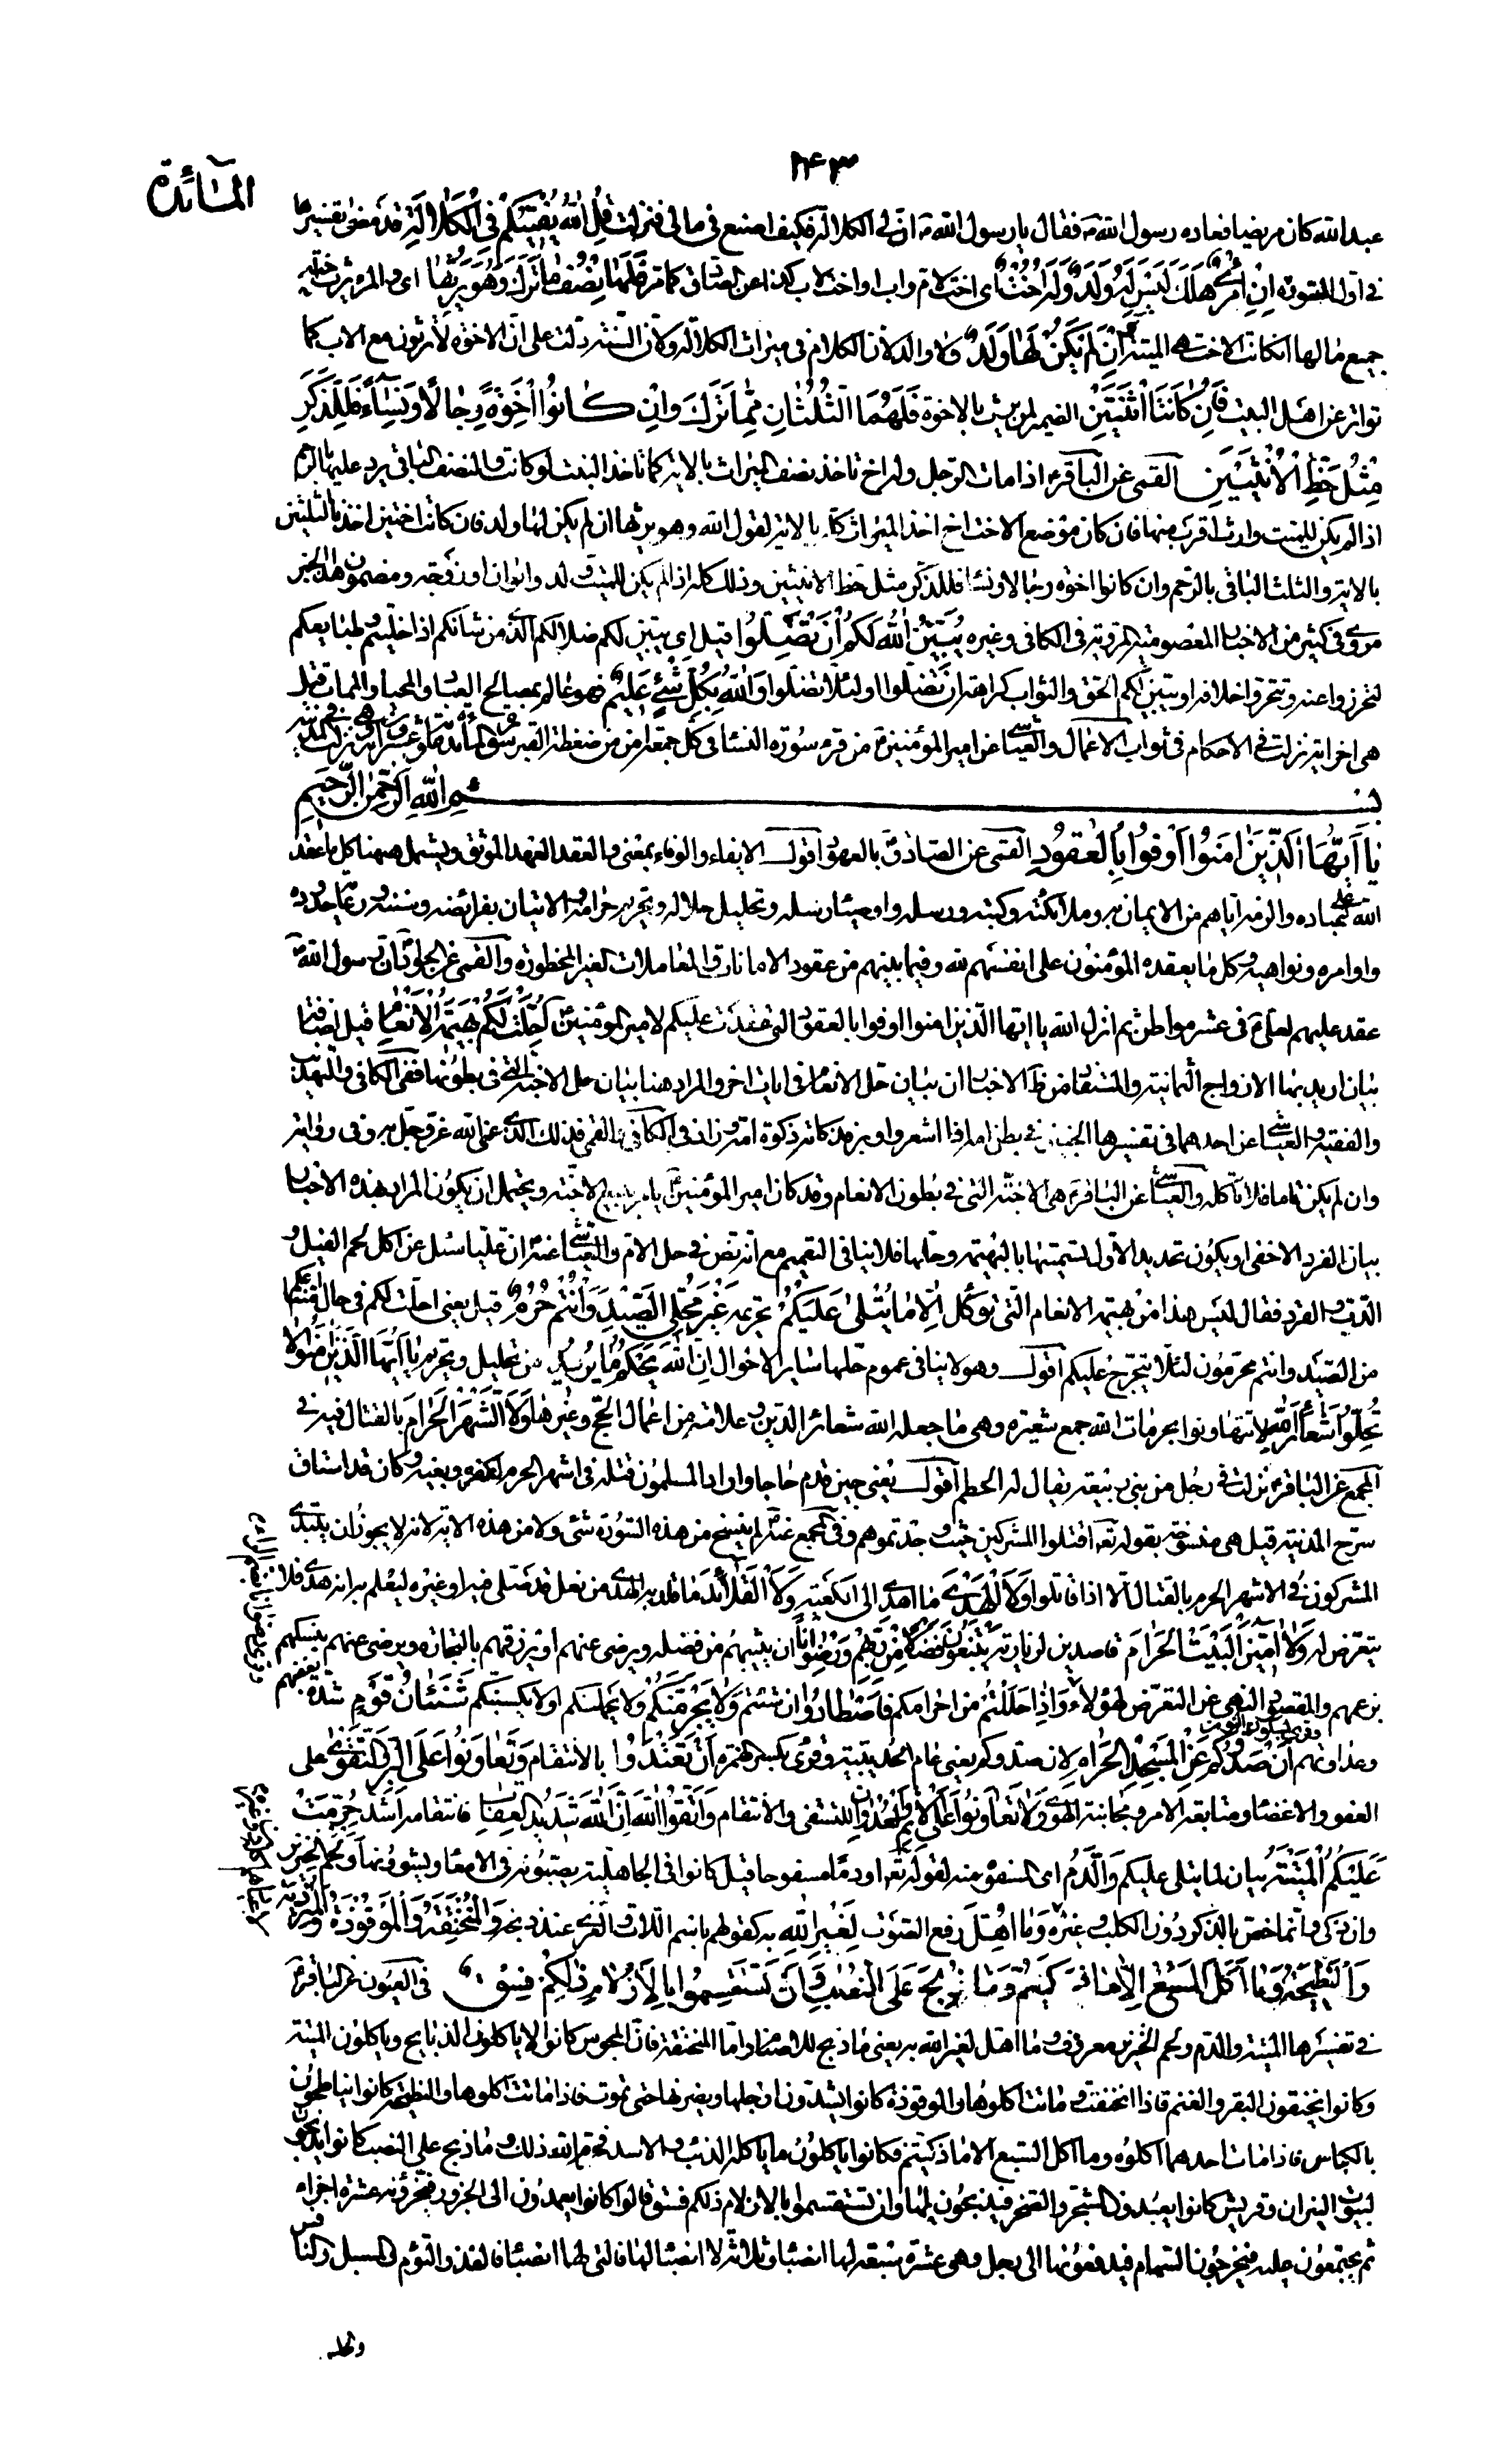 ١٤٣
المائدة
عبدالله كان مريضا فعاده رسول الله ص فقال يا رسول الله ص ان لي الكلالة فكيف اصنع في مالي فنزلت قُلِ اللهُ يُفْتِيكُمْ فِي الْكَلالَةِ قد مضى تفسيرها
في اول السورة اِنِ امْرُؤٌ هَلَكَ لَيْسَ لَهُ وَلَدٌ وَلَهُ اُخْتٌ اى اخت لام واب او اخت لاب كذا عن الصادق كما مر فَلَهَا نِصْفُ مَا تَرَكَ وَهُوَ يَرِثُهَا اى والمرء يرث اخته
جميع مالها ان كانت الاخت هي الميتة اِنْ لَمْ يَكُنْ لَهَا وَلَدٌ ولا والد لان الكلام في ميراث الكلالة ولان السنة دلت على ان الاخوة لا يرثون مع الاب كما
تواتر عن اهل البيت فَاِنْ كَانَتَا اثْنَتَيْنِ الضمير لمن يرث بالاخوة فَلَهُمَا الثُّلُثَانِ مِمَّا تَرَكَ وَاِنْ كَانُوا اِخْوَةً رِجَالًا وَنِسَاءً فَلِلذَّكَرِ
مِثْلُ حَظِّ الْاُنْثَيَيْنِ القمي عن الباقر ع اذا مات الرجل وله اخت تاخذ نصف الميراث بالاية كما تاخذ البنت لو كانت والنصف الباقي يرد عليها بالرحم
اذا لم يكن للميت وارث اقرب منها فان كان موضع الاخت اخ اخذ الميراث كله بالاية لقول الله وهو يرثها ان لم يكن لها ولد فان كانتا اختين اخذتا الثلثين
بالاية والثلث الباقي بالرحم وان كانوا اخوة رجالا ونساء فللذكر مثل حظ الانثيين وذلك كله اذا لم يكن للميت ولد وابوان او زوجة ومضمون هذا الخبر
مروي في كثير من الاخبار المعصومية المروية في الكافي وغيره يُبَيِّنُ اللهُ لَكُمْ اَنْ تَضِلُّوا قيل اي يبين لكم ضلالكم الذي من شانكم اذا خليتم وطباعكم
لتحرزوا عنه وتتحروا خلافه او يبين لكم الحق والثواب كراهة ان تضلوا او لئلا تضلوا وَاللهُ بِكُلِّ شَيْءٍ عَلِيمٌ فهو عالم بمصالح العباد والمحيا والممات قيل
هي اخر اية نزلت في الاحكام في ثواب الاعمال والعياشي عن امير المؤمنين ع من قرء سورة النساء في كل جمعة امن من ضغطة القبر سورة المائدة
بِسْمِ اللهِ الرَّحْمٰنِ الرَّحِيمِ
يَا اَيُّهَا الَّذِينَ اٰمَنُوا اَوْفُوا بِالْعُقُودِ القمي عن الصادق ع بالعهود اقول الايفاء والوفاء بمعنى والعقد العهد الموثق ويشمل هيهنا كل ما عقد
الله على عباده والزمه اياهم من الايمان به وملائكته وكتبه ورسله واوصياء رسله وتحليل حلاله وتحريم حرامه والاتيان بفرائضه وسننه ورعاية حدوده
واوامره ونواهيه وكل ما يعقده المؤمنون على انفسهم لله وفيما بينهم من عقود الامانات والمعاملات الغير المحظورة والقمي عن الجواد ع ان رسول الله ص
عقد عليهم لعلي ع في عشر مواطن ثم انزل الله يا ايها الذين امنوا اوفوا بالعقود التي عقدت عليكم لامير المؤمنين ع اُحِلَّتْ لَكُمْ بَهِيمَةُ الْاَنْعَامِ قيل اضافتها
بيان اريد بها الازواج الثمانية والمستفاد من ظ الاخبار ان بيان حل الانعام في ايات اخر والمراد هنا بيان حل الاجنة التي في بطونها ففي الكافي والتهذيب
والفقيه والعياشي عن احدهما في تفسيرها الجنين في بطن امه اذا اشعر واوبر فذكاته ذكوة امه وزاد في الكافي والقمي فذلك الذي عنى الله عز وجل به وفي رواية
وان لم يكن تاما فلا تاكله والعياشي عن الباقر ع هي الاجنة التي في بطون الانعام وقد كان امير المؤمنين ع يامر ببيع الاجنة ويحتمل ان يكون المراد بهذه الاخبار
بيان الفرد الاخفى او يكون تحديد الاول تسميتها بالبهيمة وحلها فلا ينافي التعميم مع انه نص في حل الام والعياشي عنه ان عليا سئل عن اكل لحم الفيل و
الدب والقرد فقال ليس هذا من بهيمة الانعام التي تؤكل اِلَّا مَا يُتْلٰى عَلَيْكُمْ تحريمه غَيْرَ مُحِلِّي الصَّيْدِ وَاَنْتُمْ حُرُمٌ قيل يعني احلت لكم في حال امتناعكم
من الصيد وانتم محرمون لئلا يتحرج عليكم اقول وهو لا ينافي عموم حلها سائر الاحوال اِنَّ اللهَ يَحْكُمُ مَا يُرِيدُ من تحليل وتحريم يَا اَيُّهَا الَّذِينَ اٰمَنُوا لَا
تُحِلُّوا شَعَائِرَ اللهِ لا تتهاونوا بحرمات الله جمع شعيرة وهي ما جعله الله شعائر الدين وعلامته من اعمال الحج وغيرها وَلَا الشَّهْرَ الْحَرَامَ بالقتال فيه في
المجمع عن الباقر ع نزلت في رجل من بني ربيعة يقال له الحطم اقول يعني حين قدم حاجا واراد المسلمون قتله في اشهر الحرم لكفره وبغيه وكان قد استاق
سرح المدينة قيل هي منسوخة بقوله تعالى اقتلوا المشركين حيث وجدتموهم وفي المجمع عنه ع لم ينسخ من هذه السورة شئ ولا من هذه الاية لانه لا يجوز ان يبتدي
المشركون في الاشهر الحرم بالقتال الا اذا قاتلوا وَلَا الْهَدْيَ ما اهدي الى الكعبة وَلَا الْقَلَائِدَ ما قلد به الهدي من نعل قد صلى فيه او غيره ليعلم به انه هدي فلا
يتعرض له وَلَا اٰمِّينَ الْبَيْتَ الْحَرَامَ قاصدين لزيارته يَبْتَغُونَ فَضْلًا مِنْ رَبِّهِمْ وَرِضْوَانًا ان يثيبهم من فضله ويرضى عنهم او يرزقهم بالتجارة ويرضى عنهم بنسكهم
بزعمهم والمقصود النهي عن التعرض لهؤلاء وَاِذَا حَلَلْتُمْ من احرامكم فَاصْطَادُوا ان شئتم وَلَا يَجْرِمَنَّكُمْ ولا يحملنكم او لا يكسبنكم شَنَئَانُ قَوْمٍ شدة بغضهم
وعداوتهم اَنْ صَدُّوكُمْ عَنِ الْمَسْجِدِ الْحَرَامِ لان صدوكم يعني عام الحديبية وقرئ بكسر الهمزة اَنْ تَعْتَدُوا بالانتقام وَتَعَاوَنُوا عَلَى الْبِرِّ وَالتَّقْوٰى على
العفو والاغضاء ومتابعة الامر ومجانبة الهوى وَلَا تَعَاوَنُوا عَلَى الْاِثْمِ وَالْعُدْوَانِ للتشفي والانتقام وَاتَّقُوا اللهَ اِنَّ اللهَ شَدِيدُ الْعِقَابِ فانتقامه اشد حُرِّمَتْ
عَلَيْكُمُ الْمَيْتَةُ بيان لما يتلى عليكم وَالدَّمُ اى المسفوح منه لقوله تعالى او دما مسفوحا قيل كانوا في الجاهلية يصبونه في الامعاء ويشوونها وَلَحْمُ الْخِنْزِيرِ
وان ذكي وانما خص بالذكر دون الكلب وغيره وَمَا اُهِلَّ رفع الصوت لِغَيْرِ اللهِ بِهِ كقولهم باسم اللات والعزى عند ذبحه وَالْمُنْخَنِقَةُ وَالْمَوْقُوذَةُ وَالْمُتَرَدِّيَةُ
وَالنَّطِيحَةُ وَمَا اَكَلَ السَّبُعُ اِلَّا مَا ذَكَّيْتُمْ وَمَا ذُبِحَ عَلَى النُّصُبِ وَاَنْ تَسْتَقْسِمُوا بِالْاَزْلَامِ ذٰلِكُمْ فِسْقٌ في العيون عن الباقر ع
في تفسيرها الميتة والدم ولحم الخنزير معروف وما اهل لغير الله به يعني ما ذبح للاصنام واما المنخنقة فان المجوس كانوا لا ياكلون الذبايح وياكلون الميتة
وكانوا يخنقون البقر والغنم فاذا انخنقت وماتت اكلوها والموقوذة كانوا يشدون ارجلها ويضربونها حتى تموت فاذا ماتت اكلوها والنطيحة كانوا يناطحون
بالكباش فاذا مات احدهما اكلوه وما اكل السبع الا ما ذكيتم فكانوا ياكلون ما ياكله الذئب والاسد فحرم الله ذلك وما ذبح على النصب كانوا يذبحون
لبيوت النيران وقريش كانوا يعبدون الشجر والصخر فيذبحون لهما وان تستقسموا بالازلام ذلكم فسق قال كانوا يعمدون الى الجزور فيجزؤنه عشرة اجزاء
ثم يجتمعون عليه فيخرجون السهام فيدفعونها الى رجل وهي عشرة سبعة لها انصباء وثلاثة لا انصباء لها فالتي لها انصباء فالفذ والتوؤم والمسبل والنافس